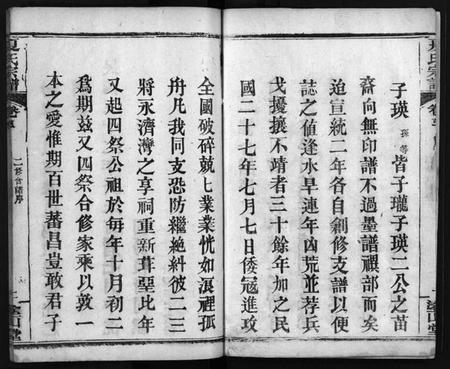 子瑛 孫等 皆子瓏子瑛二公之苗
裔向無印譜不過墨譜禩部而矣
迨宣統二年各自創修支譜以便
誌之值逢水旱連年凶荒並荐兵
戈擾攘不靖者三十餘年加之民
國二十七年七月七日倭寇進攻
全國破碎兢兢業業恍如浪裡孤
舟凡我同支恐防繼絶糾彼二三
將永濟灣之享祠重新葺堊比年
又起四祭公祖於每年十月初二
爲期茲又四祭合修家乘以敦一
本之愛惟期百世蕃昌豈敢君子
夏氏宗譜
卷首
二修合譜序
塗山堂